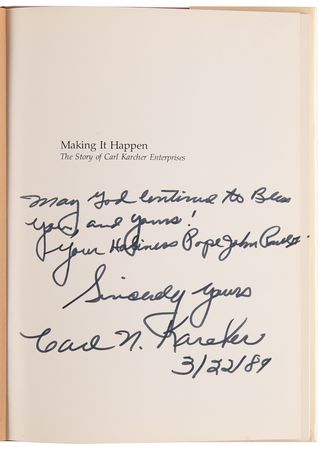 Making It Happen
The Story of Carl Karcher Enterprises
May God Continue to Bless
You and yours!
Your Holiness Pope John Paul II.
Sincerely Yours
Carl N. Karcher
3/22/89